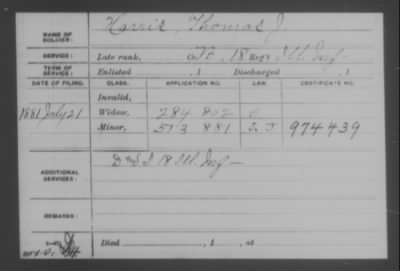 NAME OF SOLDIER: Harris, Thomas J.
SERVICE: Late rank, Co. B, 18 Reg't Ill. Inf.
TERM OF SERVICE: Enlisted , 1 Discharged , 1
DATE OF FILING. CLASS. APPLICATION NO. LAW. CERTIFICATE NO.
Invalid,
1881 July 21 Widow, 284 802 O
Minor, 513 881 974439
ADDITIONAL SERVICES: D 18 Ill. Inf
REMARKS:
Died , 1 , at